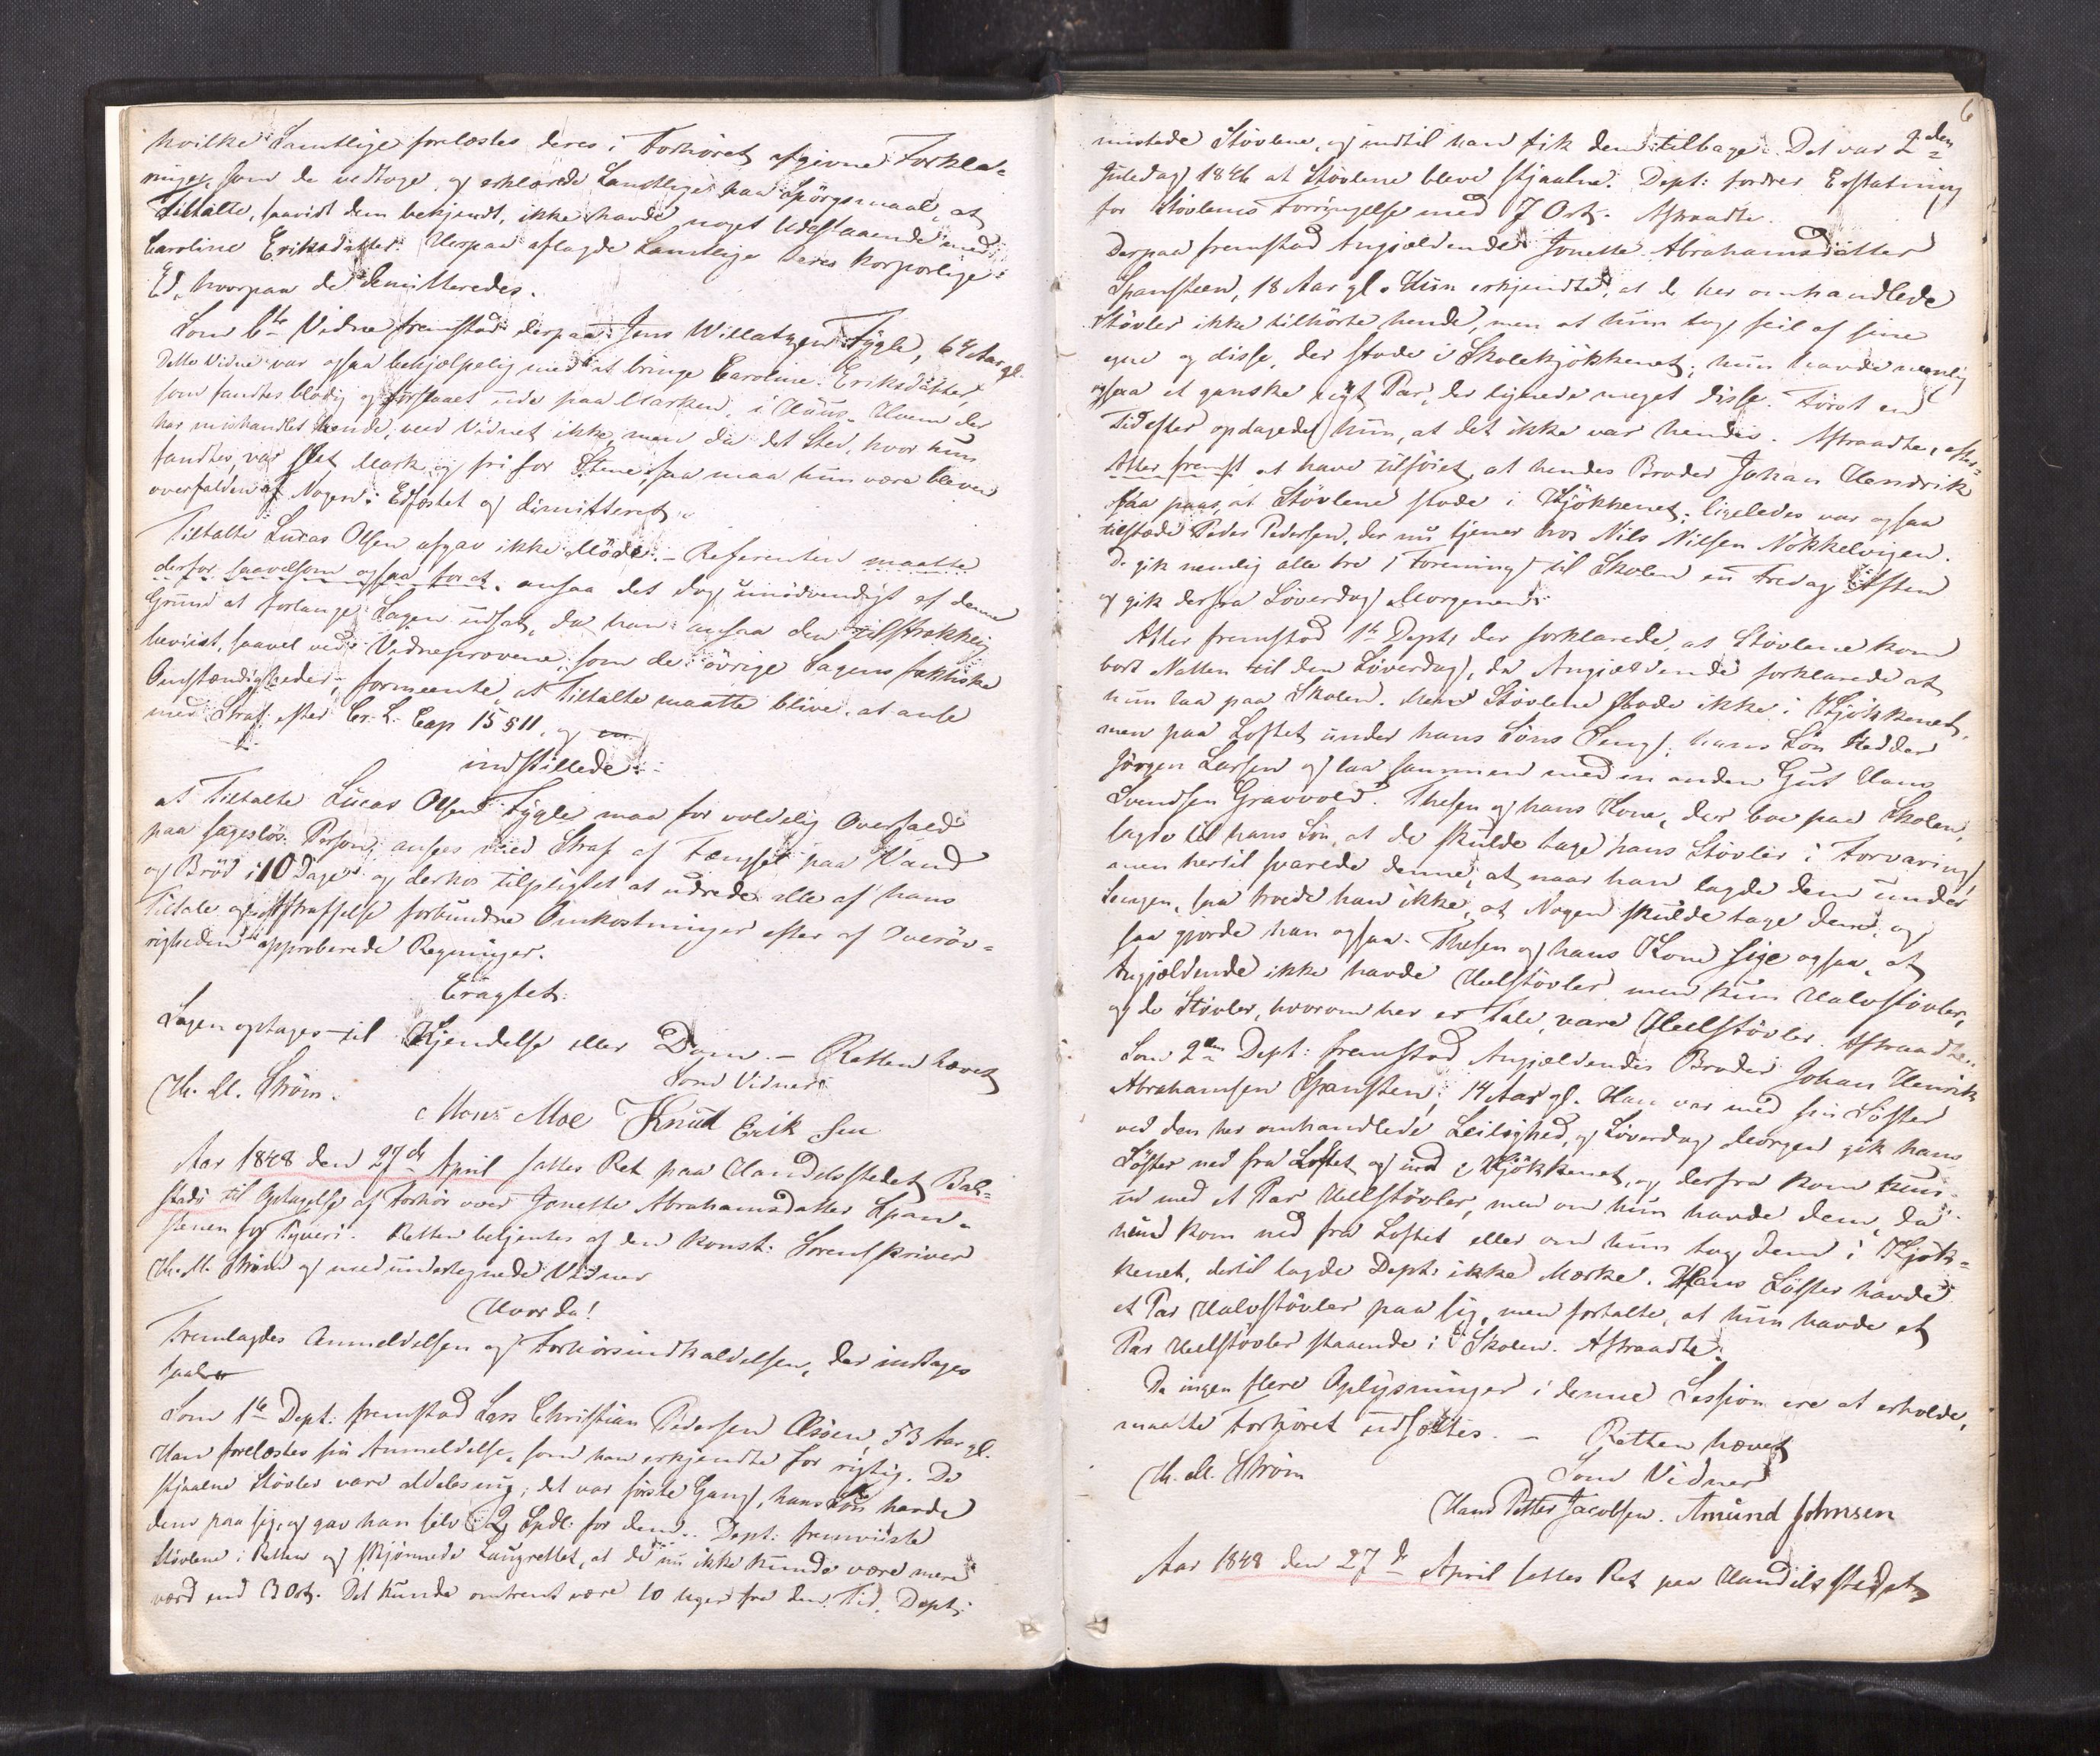 hvilke Samtlige forelæstes deres i Forhöret afgivne Forkla-
ringer, som de vedtoge, og erklærede Samtlige paa Spörgsmaal, at
Tiltalte, saavidt dem bekjendt, ikke havde noget Udestaaende med
Caroline Eriksdatter. Herpaa aflagde Samtlige deres korporlige
Ed, hvorpaa de demitteredes.
Som 6te Vidne fremstod derpaa Jens Willatzen Fygle, 64 Aar gl.
Dette Vidne var ogsaa behjælpelig med at bringe Caroline Eriksdatter,
som fandtes blodig og forslaaet ude paa Marken, i Huus. Hvem der
har mishandlet hende, veed Vidnet ikke, men da det Sted, hvor hun
fandtes, var slet Mark og fri for Stene, saa maa hun være bleven
overfalden af Nogen. Edfæstet og dimitteret.
Tiltalte Lucas Olsen afgav ikke Möde. – Referenten maatte
derfor saavelsom ogsaa for at ansaa det dog unödvendigt af denne
Grund at forlange Sagen udsat, da han ansaa den tilstrækkelig
beviist, saavel ved Vidneprovene, som de övrige Sagens faktiske
Omstændigheder, formeente, at Tiltalte maatte blive at ansee
med Straf efter Cr. L. Cap 15 § 11, og en
indstillede:
at Tiltalte Lucas Olsen Fygle maa for voldelig Overfald
paa sageslös Person, ansees med Straf af Fængsel paa Vand
og Bröd i 10 Dage og derhos tilpligtet at udrede alle af hans
Tiltale og Afstraffelse forbundne Omkostninger efter af Överöv-
righeden approberede Regninger.
Eragtet:
Sagen optages til Kjendelse eller Dom. – Retten hævet
Th. M. Ström. Som Vidner
Mons Moe Knud Erik Sen
Aar 1848 den 27de April sattes Ret paa Handelsstedet Bal-
stad til Optagelse af Forhör over Jonette Abrahamsdatter Span-
stenen for Tyveri. Retten betjentes af den konst: Sorenskriver
Th. M. Ström og med undertegnede Vidner
Hvorda!
Fremlagdes Anmeldelsen og Forhörsindkaldelsen, der indtages
saal.
Som 1te Dept: fremstod Lars Christian Pedersen 53 Aar gl.
Han forelæstes sin Anmeldelse, som han erkjendte for rigtig. De
stjaalne Stövler vare aldeles nye; det var förste Gang, hans Sön havde
dem paa sig, og gav han selv 2 Spdl: for dem. Dept: fremviiste
Stövlene i Retten og skjönnede Laugrettet, at de nu ikke kunde være mere
værd end 3 Ort. Det kunde omtrent være 10 Uger fra den Tid, Dept:
6
mistede Stövlene, og indtil han fik dem tilbage. Det var 2den
Juledag 1846 at Stövlene bleve stjaalne. Dept: fordrer Erstatning
for Stövlenes Forringelse med 7 Ort. Aftraadte.
Derpaa fremstod Angjældende Jonette Abrahamsdatter
Spansteen, 18 Aar gl. Hun erkjendte, at de her omhandlede
Stövler ikke tilhörte hende, men at hun tog feil af sine
egne og disse, der stode i Skolekjökkenet; hun havde nemlig
ogsaa et ganske nyt Par, der lignede meget disse. Först en
Tid efter opdagede hun, at det ikke var hendes. Aftraadte, efter
Atter fremst at have tilföiet, at hendes Broder Johan Hendrik
saa paa, at Stövlene stode i Kjökkenet; ligeledes var ogsaa
tilstæde Peder Pedersen, der nu tjener hos Nils Nilsen Nökkelvigen.
De gik nemlig alle tre i Forening til Skolen en Fredag Aften
og gik derfra Löverdag Morgenen.
Atter fremstod 1te Dept, der forklarede, at Stövlene kom
bort Natten til den Löverdag, da Angjældende forklarede at
hun laa paa Skolen. Men Stövlene stode ikke i Kjökkenet,
men paa Loftet under hans Söns Seng; hans Sön hedder
Jörgen Larsen og laa sammen med en anden Gut Hans
Svendsen Gravvold. Thesen og hans Kone, der boe paa Skolen,
sagde til hans Sön, at de skulde tage hans Stövler i Forvaring,
men hertil svarede denne, at naar han lagde dem under
Sengen, saa troede han ikke, at Nogen skulde tage dem, og
saa gjorde han ogsaa. Thesen og hans Kone sige ogsaa, at
Angjældende ikke havde Heelstövler, men kun Halvstövler,
og de Stövler, hvorom her er Tale, vare Heelstövler. Aftraadte.
Som 2den Dept: fremstod Angjældendes Broder Johan Henrik
Abrahamsen Spansten, 14 Aar gl. Han var med sin Söster
ved den her omhandlede Leilighed, og Löverdag Morgen gik hans
Söster ned fra Loftet og ind i Kjökkenet, og derfra kom hun
ud med et Par Heelstövler, men om hun havde dem, da
hun kom ned fra Loftet eller om hun tog dem i Kjök-
kenet, dertil lagde Dept: ikke Mærke. Hans Söster havde
et Par Halvstövler paa sig, men fortalte, at hun havde et
Par Heelstövler staaende i Skolen. Aftraadte.
Da ingen flere Oplysninger i denne Session ere at erholde,
maatte Forhöret udsættes. – Retten hævet
Th. M. Ström Som Vidner
Hans Petter Jacobsen. Amund Johnsen
Aar 1848 den 27de April sattes Ret paa Handelsstedet